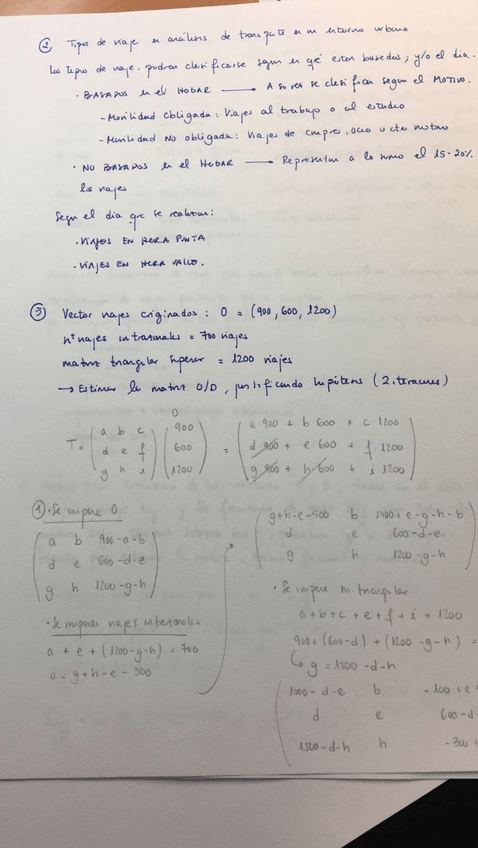 ② Tipos de viaje en análisis de transporte en un entorno urbano
Los tipos de viaje, podrán clasificarse según en qué estén basados, y/o el día.
· BASADOS en el HOGAR —— A su vez se clasifican según el MOTIVO.
- Movilidad Obligada: Viajes al trabajo o al estudio
- Movilidad NO obligada: Viajes de compras, ocio u otro motivo
· NO BASADOS en el HOGAR —— Representan a lo sumo el 15-20%
los viajes
Según el día que se realicen:
· VIAJES EN HORA PUNTA
· VIAJES EN HORA VALLE.
③ Vector viajes originados: O = (900, 600, 1200)
nº viajes intrazonales = 700 viajes
matriz triangular superior = 1200 viajes
→ Estimar la matriz O/D, justificando hipótesis (2 iteraciones)
O
T = ( a b c ) ( 900 ) = ( a 900 + b 600 + c 1200 )
( d e f ) ( 600 ) ( d 900 + e 600 + f 1200 )
( g h i ) ( 1200 ) ( g 900 + h 600 + i 1200 )
① · Se impone O:
( a b 900-a-b )
( d e 600-d-e )
( g h 1200-g-h )
· Se imponen viajes intrazonales
a + e + (1200-g-h) = 700
a = g+h-e-500
( g+h-e-500 b 1400+e-g-h-b )
( d e 600-d-e )
( g h 1200-g-h )
· Se impone m. triangular
a+b+c+e+f+i = 1200
900+(600-d)+(1200-g-h) =
↳ g = 1500-d-h
( 1000-d-e b -100+e
d e 600-d
1500-d-h h -300+